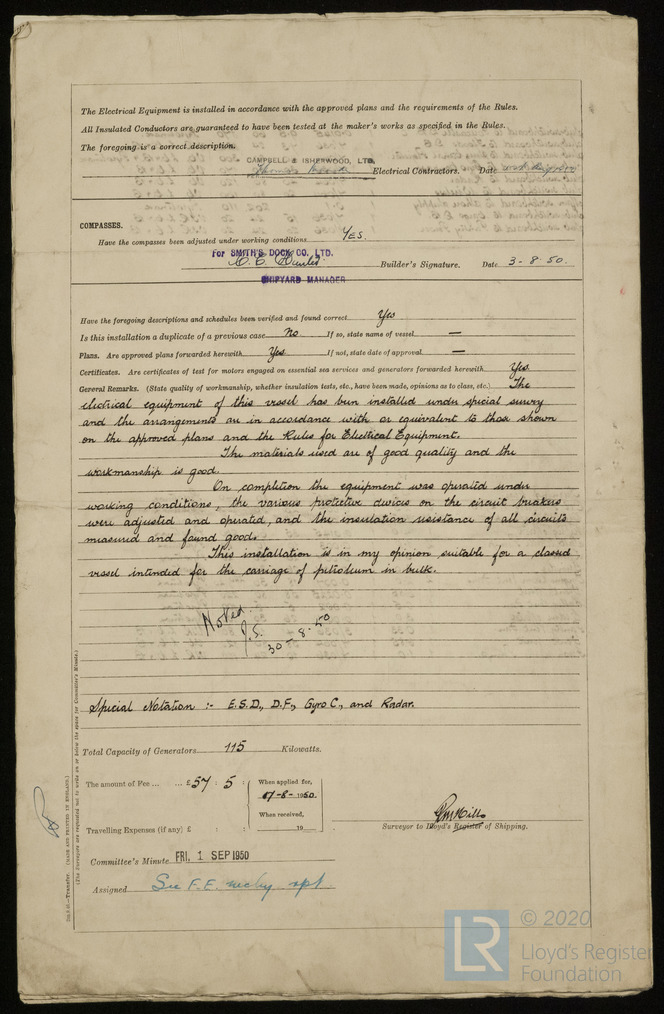 The Electrical Equipment is installed in accordance with the approved plans and the requirements of the Rules.
All Insulated Conductors are guaranteed to have been tested at the maker's works as specified in the Rules.
The foregoing is a correct description.
CAMPBELL & ISHERWOOD, LTD.
Electrical Contractors. Date
COMPASSES.
Have the compasses been adjusted under working conditions YES.
For SMITH'S DOCK CO. LTD.
Builder's Signature. Date 3-8-50.
SHIPYARD MANAGER
Have the foregoing descriptions and schedules been verified and found correct Yes
Is this installation a duplicate of a previous case No If so, state name of vessel —
Plans. Are approved plans forwarded herewith Yes If not, state date of approval —
Certificates. Are certificates of test for motors engaged on essential sea services and generators forwarded herewith Yes
General Remarks. (State quality of workmanship, whether insulation tests, etc., have been made, opinions as to class, etc.) The
electrical equipment of this vessel has been installed under special survey
and the arrangements are in accordance with or equivalent to those shown
on the approved plans and the Rules for Electrical Equipment.
The materials used are of good quality and the
workmanship is good.
On completion the equipment was operated under
working conditions, the various protective devices on the circuit breakers
were adjusted and operated, and the insulation resistance of all circuits
measured and found good.
This installation is in my opinion suitable for a classed
vessel intended for the carriage of petroleum in bulk.
Noted.
J.S.
30-8-50
Special Notation :- E.S.D., D.F., Gyro C., and Radar.
Total Capacity of Generators 115 Kilowatts.
The amount of Fee ... ... £57 : 5 :
When applied for,
-8-1950.
When received,
19
Travelling Expenses (if any) £ : :
Surveyor to Lloyd's Register of Shipping.
Committee's Minute FRI. 1 SEP 1950
Assigned See F.E. mchy rpt
(MADE AND PRINTED IN ENGLAND.)
(The Surveyors are requested not to write on or below the space for Committee's Minute.)
LR
© 2020
Lloyd's Register
Foundation